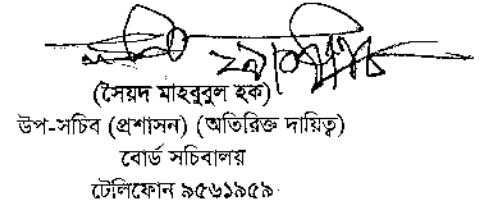 (সৈয়দ মাহবুবুল হক)
উপ-সচিব (প্রশাসন) (অতিরিক্ত দায়িত্ব)
বোর্ড সচিবালয়
টেলিফোন ৯৫৬১৯৫৯